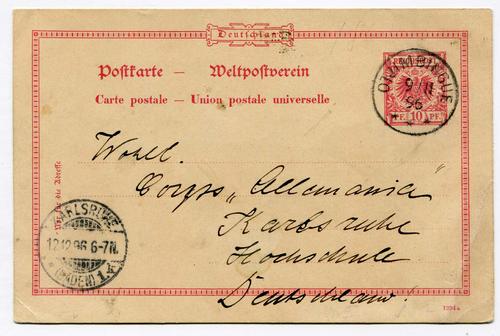 Deutschland
Postkarte — Weltpostverein
Carte postale — Union postale universelle
REICHSPOST
10 PF. 10 PF.
9/11
96
die Adresse
Wohll.
Corps „Allemania"
Karlsruhe
Hochschule
Deutschland.
KARLSRUHE
12.12.96 6-7N.
(BADEN) 1.